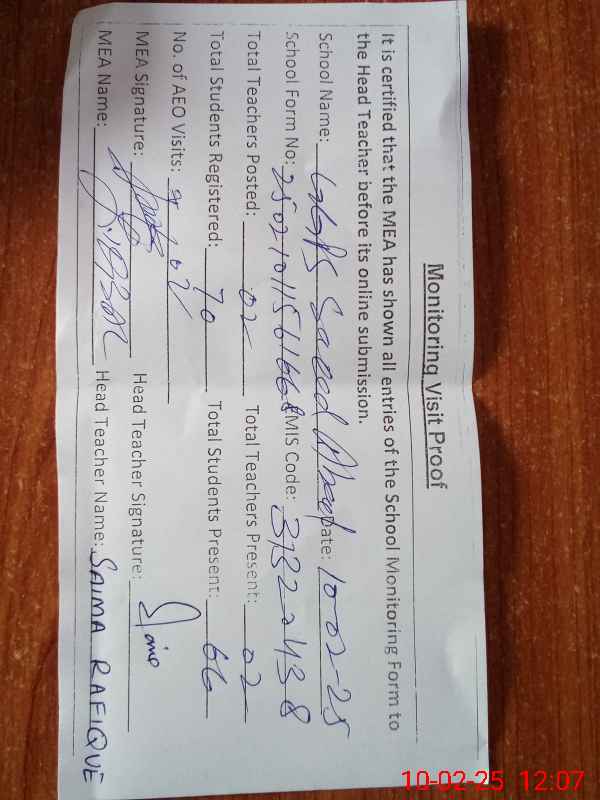 Monitoring Visit Proof
It is certified that the MEA has shown all entries of the School Monitoring Form to
the Head Teacher before its online submission.
School Name: GGPS Saeed Abad Date: 10-02-25
School Form No: EMIS Code: 31320438
Total Teachers Posted: 02 Total Teachers Present: 02
Total Students Registered: 70 Total Students Present: 66
No. of AEO Visits: 02
MEA Signature: Head Teacher Signature:
MEA Name: Head Teacher Name: SAIMA RAFIQUE
10-02-25 12:07